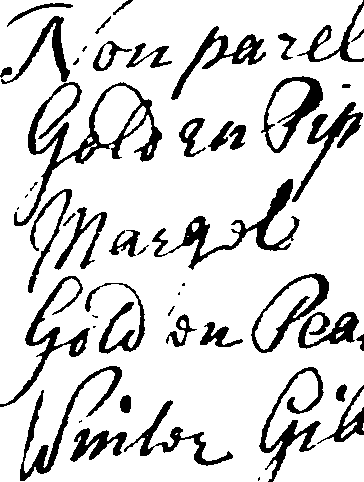 Non parel
Golden Pip
Margol
Golden Pea
Winter Gil